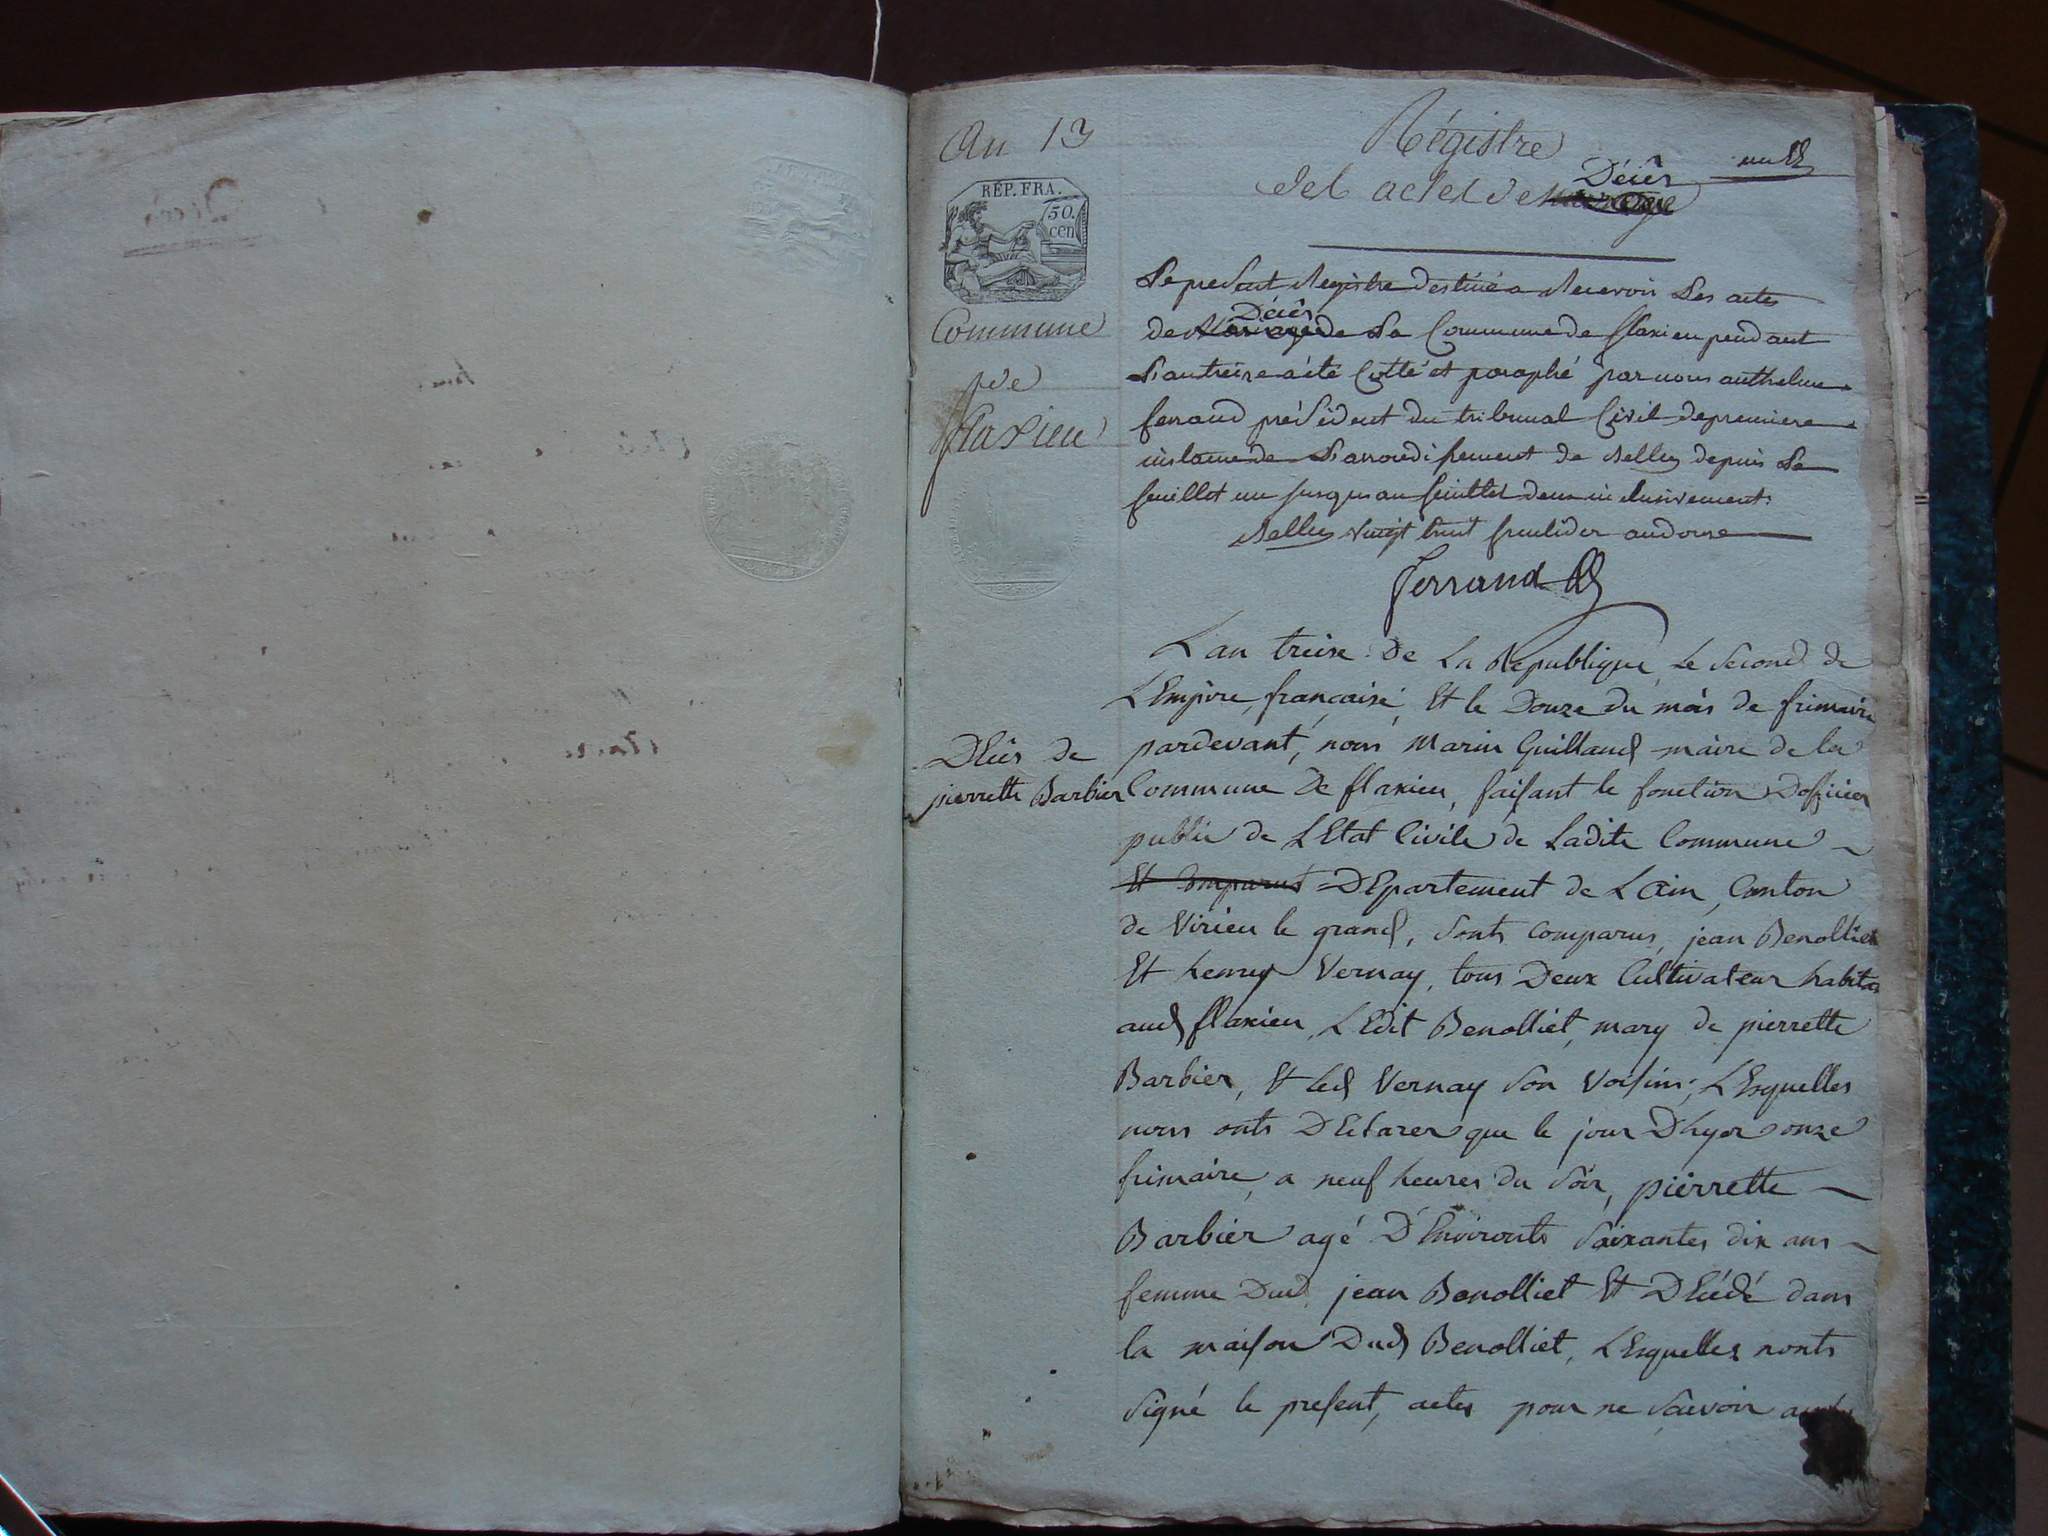 An 13
Régistre
des actes de Décès
un
RÉP. FRA.
50.
cen
Commune
de
flaxieu
Le present Registre destiné a Recevoir Les actes
de Mariage Décès de La Commune de flaxieu pendant
L'an treize a été Cotté et paraphé par nous anthelme
ferrand président du tribunal Civil de premiere
instance de L'arrondissement de Belley depuis Le
feuillet un jusqu'au feuillet deux inclusivement.
Belley vingt huit fructidor an douze
Ferrand
L'an treize De La Republique, Le Second de
L'Empire française, Et le Douze du mois de frimaire
pardevant, nous Marin Guilland maire de la
Décès de
pierrette Barbier
Commune De flaxieu, faisant le fonction D'officier
public de L'Etat Civile de Ladite Commune
Et Comparus DEpartement de Lain, Canton
de Virieu le grand, Sonts Comparus, jean Benolliet
Et henry Vernay, tous Deux Cultivateur habitas
aud flaxieu, LEdit Benolliet, mary de pierrette
Barbier, Et led Vernay Son Voisins, LEsquelles
nous onts DEclarer que le jour D'hyer onze
frimaire, a neuf heures du Soir, pierrette
Barbier agé D'Environts Soixantes dix ans
femme Dud, jean Benolliet Et Décédé dans
la maison Dud Benolliet, LEsquelles nonts
Signé le present, actes pour ne Scavoir